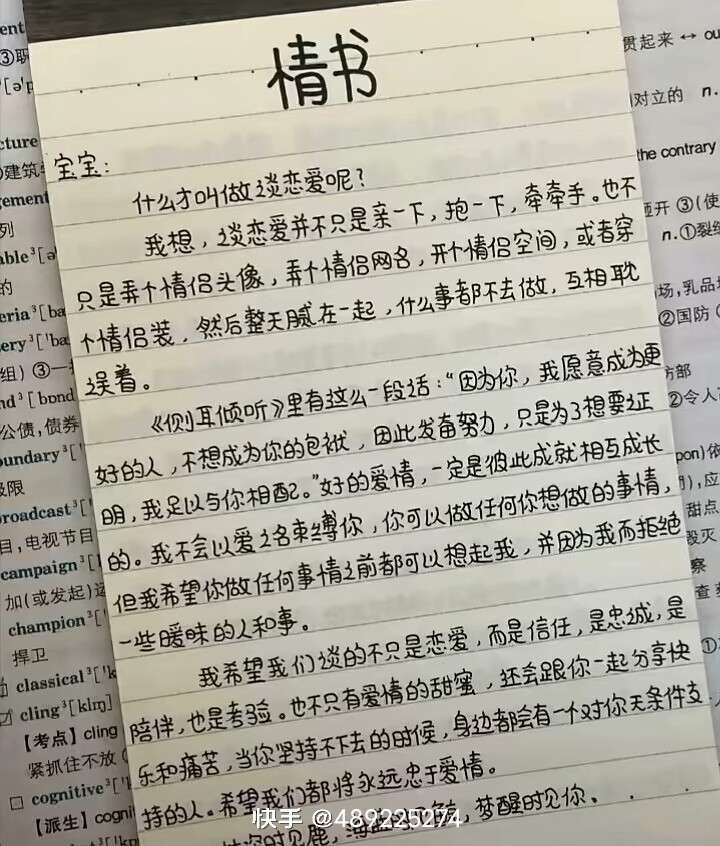 情书
宝宝：
什么才叫做谈恋爱呢？
我想，谈恋爱并不只是亲一下，抱一下，牵牵手。也不
只是弄个情侣头像，弄个情侣网名，开个情侣空间，或者穿
个情侣装，然后整天腻在一起，什么事都不去做，互相耽
误着。
《侧耳倾听》里有这么一段话：“因为你，我愿意成为更
好的人，不想成为你的包袱，因此发奋努力，只是为了想要证
明，我足以与你相配。”好的爱情，一定是彼此成就相互成长
的。我不会以爱之名束缚你，你可以做任何你想做的事情，
但我希望你做任何事情之前都可以想起我，并因为我而拒绝
一些暧昧的人和事。
我希望我们谈的不只是恋爱，而是信任，是忠诚，是
陪伴，也是考验。也不只有爱情的甜蜜，还会跟你一起分享快
乐和痛苦，当你坚持不下去的时候，身边都会有一个对你无条件支
持的人。希望我们都将永远忠于爱情。
时见鹿，梦醒时见你、
快手 @489225274
③职
[ə'p
①建筑
列
的
组) ③一
公债,债券
极限
broadcast³['
目,电视节目
campaign³['
加(或发起)运
champion³['
捍卫
classical³['k
cling³[klɪŋ]
【考点】cling
紧抓住不放
cognitive³['
【派生】cogni
贯起来 ↔ ou
对立的 n.
the contrary
③(使
n.①裂
场,乳品
②国防
防部
②令人
甜点
毁灭
察